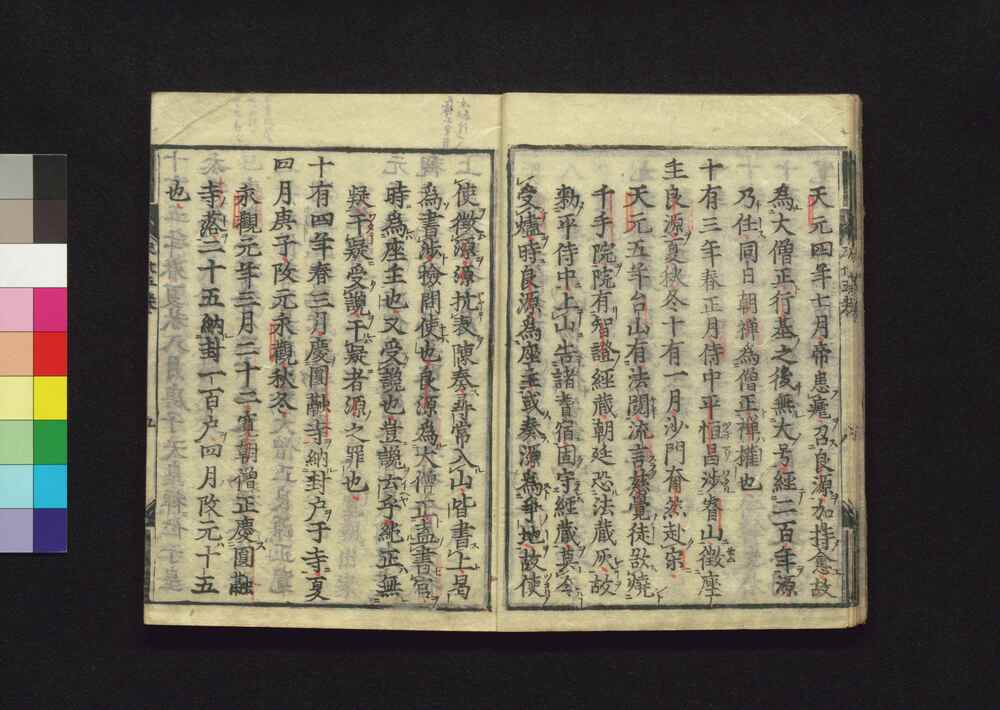 天元四年七月帝患瘧召良源加持愈故
為大僧正行基之後無大号經二百年源
乃任同日朝禅為僧正禅擢也
十有三年春正月侍中平恒昌渉睿山徴座
主良源夏秋冬十有一月沙門奝然赴宋
天元五年台山有法閧流言慈覺徒欲燒
千手院院有智證經蔵朝廷恐法蔵灰故
勅平侍中上山告諸耆宿固守經蔵莫令
受爐時良源為座主或奏源為爭地故使
使徴源源抗表陳奏尋常入山皆書上曷
為書渉檢閧使也良源為大僧正盍書官
時為座主也又受譏也豈譏云乎純正無
疑于疑受譏于疑者源之罪也
十有四年春三月慶圓融寺納封戸于寺夏
四月庚子改元永觀秋冬
永觀元年三月二十二賓朝僧正慶圓融
寺落二十五納封一百戸四月改元十五
也